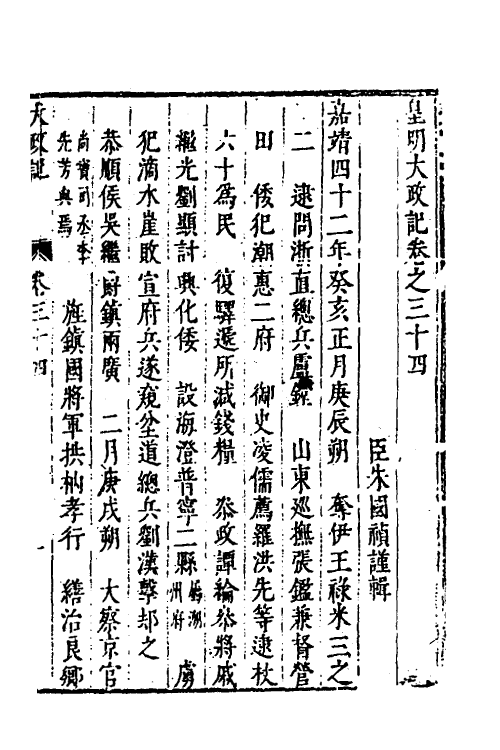 皇明大政記卷之三十四
臣朱國禎謹輯
嘉靖四十二年癸亥正月庚辰朔　奪伊王祿米三之
二　逮問浙直總兵盧鏜　山東巡撫張鑑兼督營
田　倭犯潮惠二府　御史凌儒薦羅洪先等逮杖
六十為民　復驛遞所減錢糧　叅政譚綸叅將戚
繼光劉顯討興化倭　設海澄普寧二縣　潮州府　虜
犯滴水崖敗宣府兵遂窺坌道總兵劉漢擊却之
恭順侯吳繼爵鎮兩廣　二月庚戌朔　大察京官
尚寳司丞李
先芳與焉　旌鎮國將軍拱枘孝行　繕治良鄉
大政記　卷三十四　一